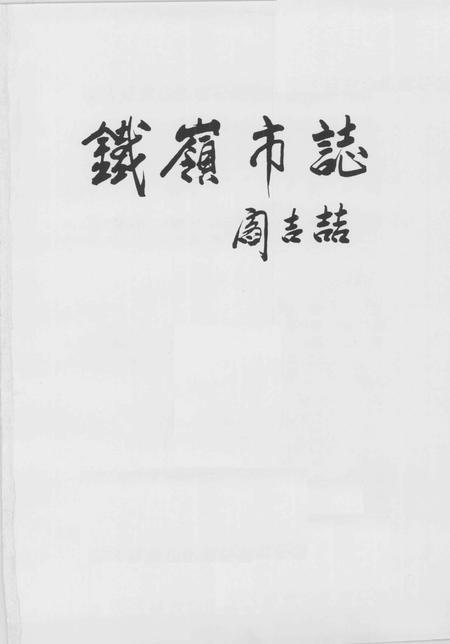 鐵嶺市誌
阎吉喆